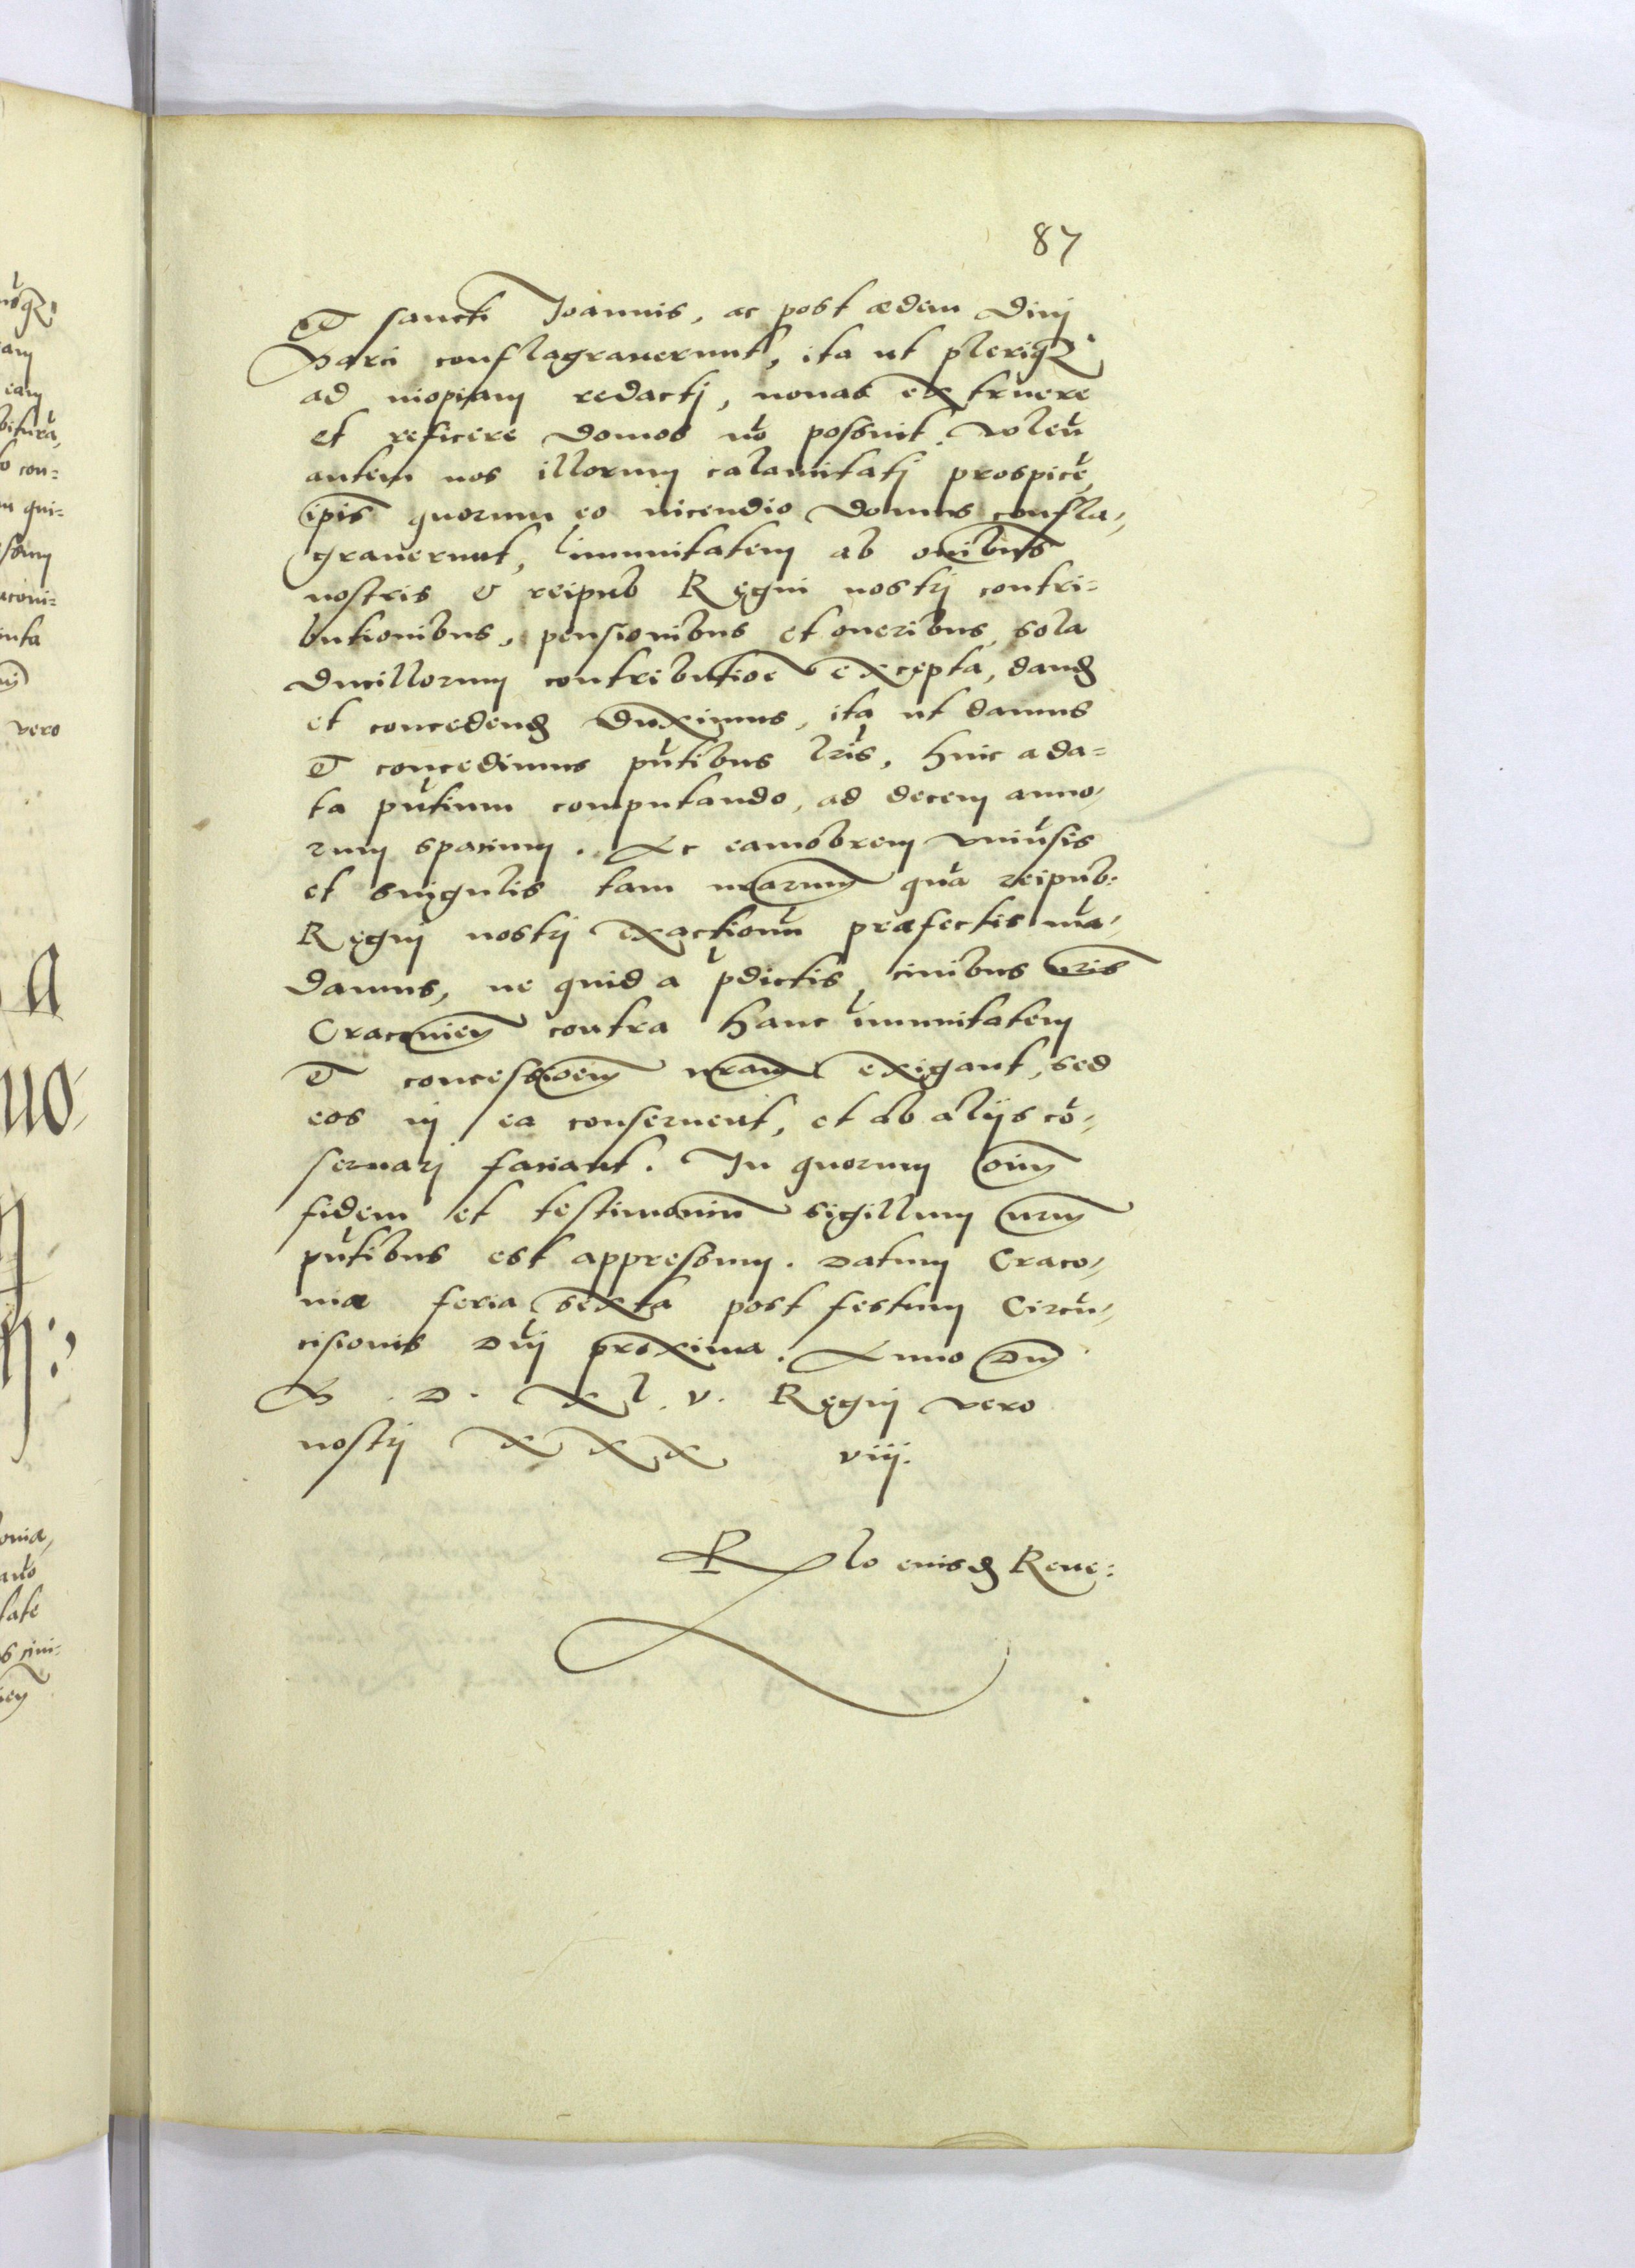 87
Et sancti Joannis, ac post ædem Diui
Marci conflagrauerunt, ita ut pleriq3
ad inopiam redactj, nouas extruere
et reficere domos nõ possint. Voleñ
autem nos illorum calamitatj prospicẽ,
ip̃is quorum eo incendio domus confla-
grauerunt, immunitatem ab om̃ibus
nostris & reipub Regni nostrj contri=
butionibus, pensionibus et oneribus, sola
Ducillorum contributiõe excepta, dand
et concedend duximus, ita ut damus
Et concedimus pñtibus lr̃is, hinc a da=
ta pñtium computando, ad decem anno-
rum spatium. Ac eamobrem vniũsis
et singulis tam nr̃arum quã reipub:
Regnj nostrj exactionũ præfectis mã-
damus, ne quid a p̃dictis ciuibus nr̃is
Cracouieñ contra hanc immunitatem
Et concessioem̃ nr̃am exigant, sed
eos in ea conseruent, et ab alijs cõ-
seruarj faciant. In quorum om̃
fidem et testimoniũ sigillum nr̃m
pñtibus est appressum. Datum Craco-
uiæ feria sexta post festum Circũ-
cisionis Dñj proxima. Anno Dñj
M. D. X l. v. Regnj vero
nostrj X X X viij.
R̃elo eiusd Reue:
ia,
tate
vero
con=
qui=